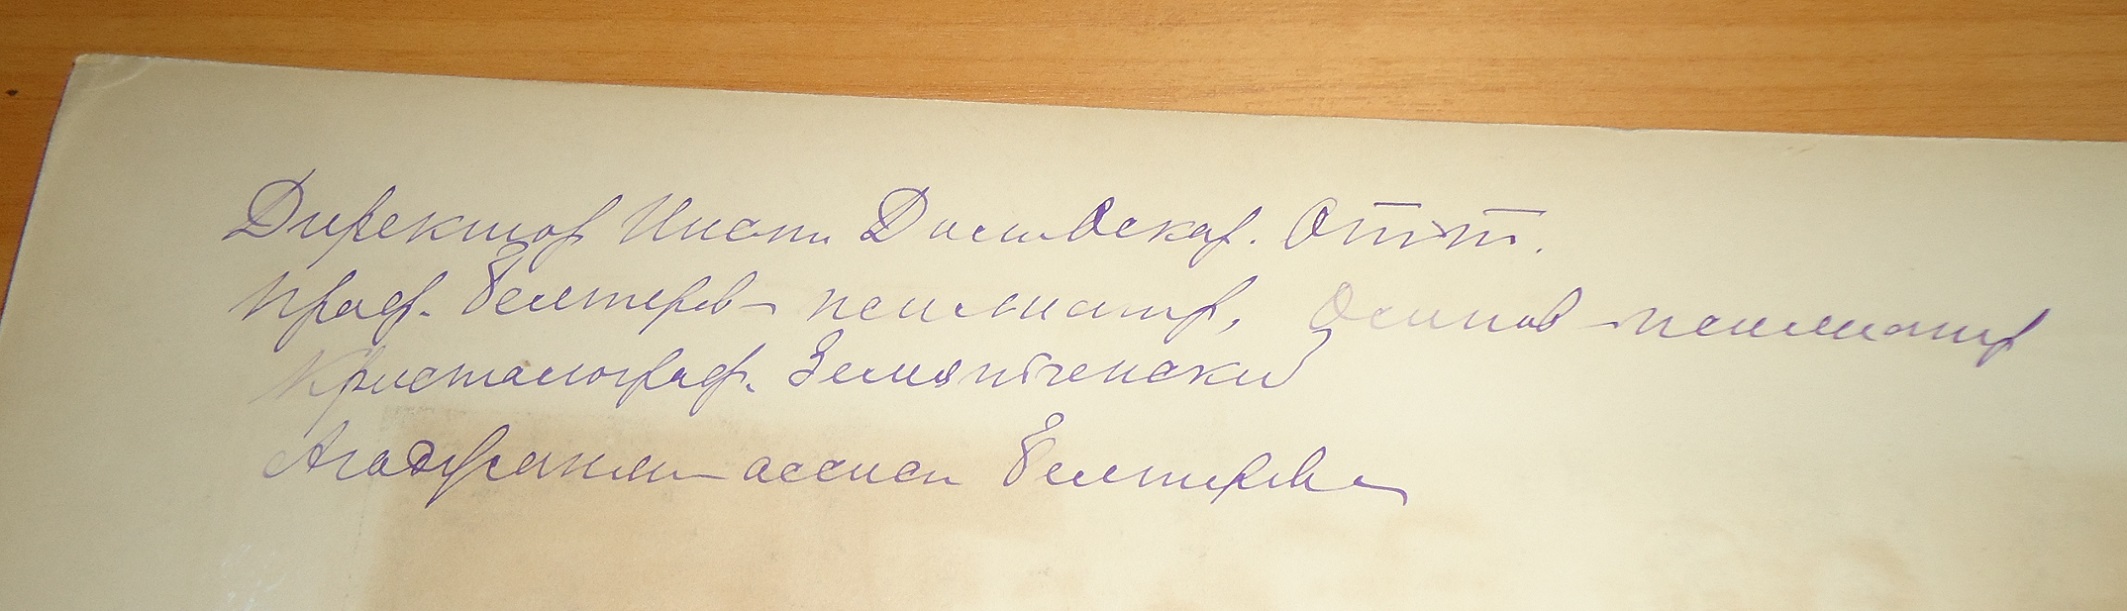 Директор Инст. Оскар. Отт.
Проф. Бехтерев - психиатр, Осипов - психиатр
Кристалограф. Земятченский
Агаджанян - ассист Бехтерева